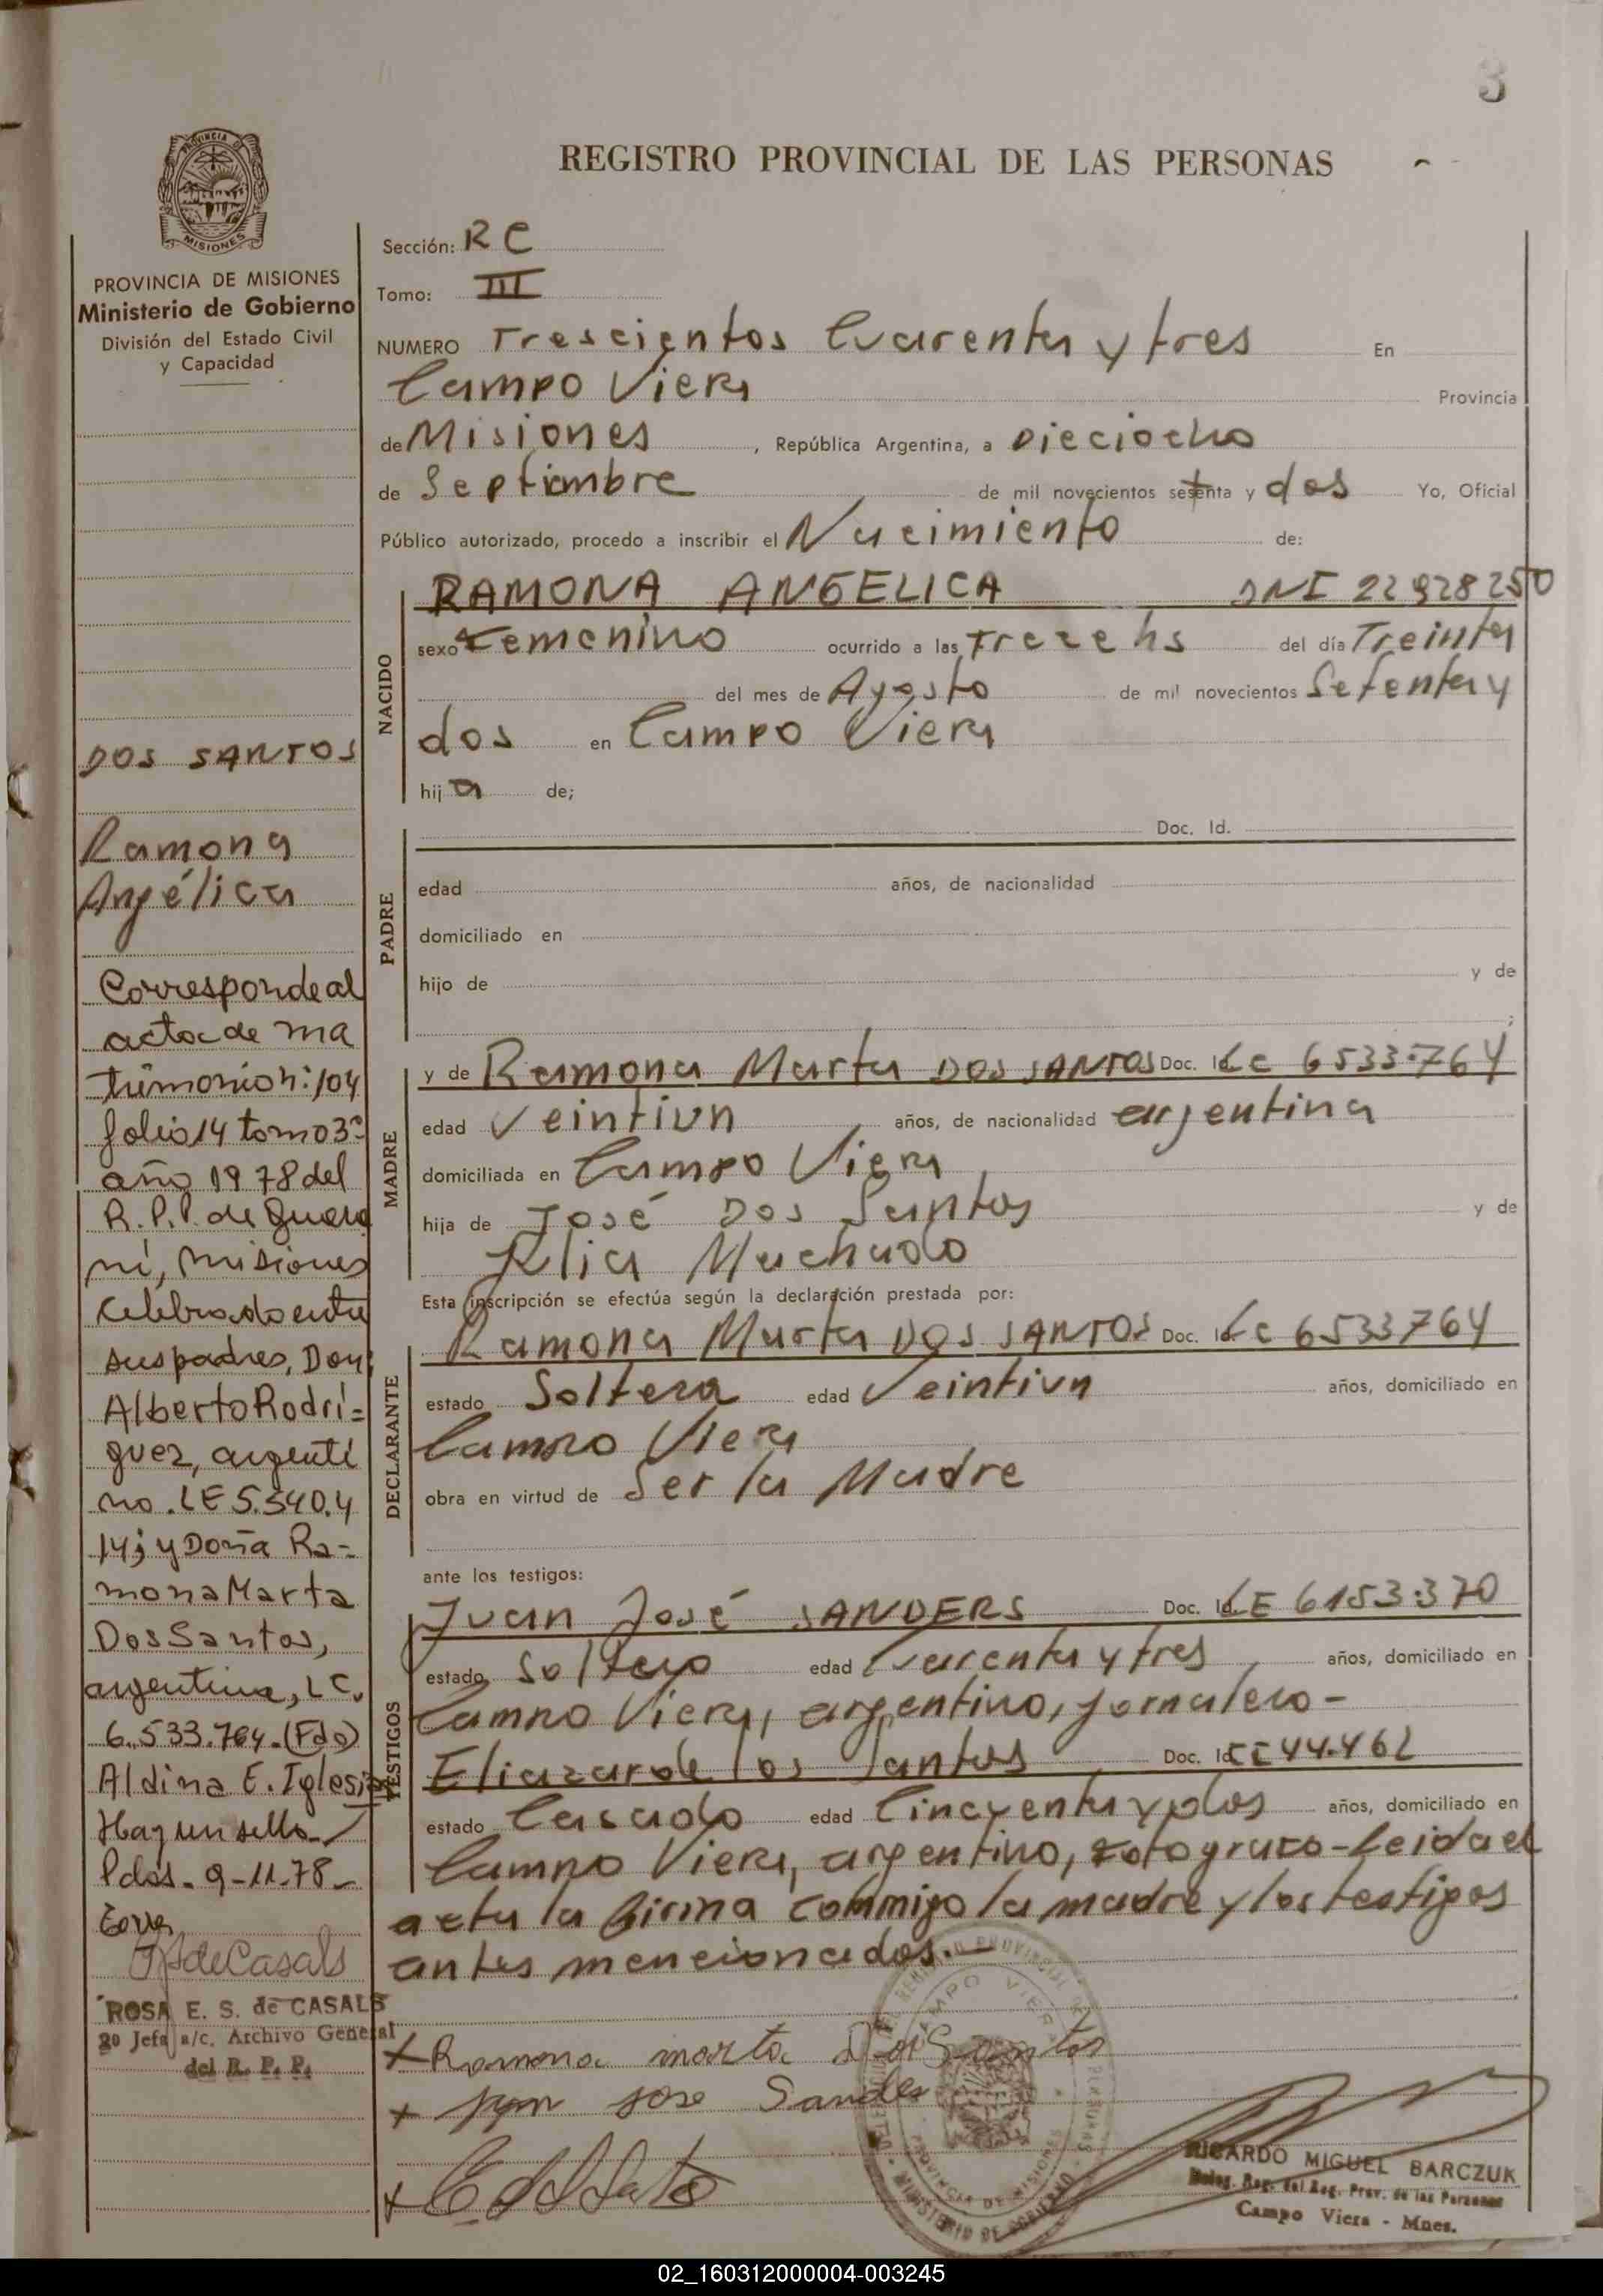 3
REGISTRO PROVINCIAL DE LAS PERSONAS
PROVINCIA DE MISIONES
Ministerio de Gobierno
División del Estado Civil
y Capacidad
DOS SANTOS
Ramona
Angélica
Corresponde al
acta de ma
trimonio n: 104
folio 14 tomo 3º
año 1978 del
R.P.P. de Guara
ní, Misiones
celebrado entre
sus padres, Don
Alberto Rodrí=
guez, argenti
no. LE 5.540.4
14; y Doña Ra-
mona Marta
Dos Santos,
argentina, LC.
6.533.764. (Fdo)
Aldina E. Iglesias
Hay un sello.
Pdas. 9-11-78-
de Casals
ROSA E. S. de CASALS
2º Jefa a/c. Archivo General
del R. P. P.
Sección: RC
Tomo: III
NUMERO Trescientos Cuarenta y tres En
Campo Viera Provincia
de Misiones, República Argentina, a Dieciocho
de Septiembre de mil novecientos setenta y dos Yo, Oficial
Público autorizado, procedo a inscribir el Nacimiento de:
NACIDO
RAMONA ANGELICA DNI 22928250
sexo Femenino ocurrido a las Trece hs del día Treinta
del mes de Agosto de mil novecientos Setenta y
dos en Campo Viera
hija de;
PADRE
Doc. Id.
edad años, de nacionalidad
domiciliado en
hijo de y de
;
MADRE
y de Ramona Marta DOS SANTOS Doc. Id. LC 6533.764
edad Veintiun años, de nacionalidad argentina
domiciliada en Campo Viera
hija de José Dos Santos y de
Julia Machado
Esta inscripción se efectúa según la declaración prestada por:
DECLARANTE
Ramona Marta DOS SANTOS Doc. Id. LC 6533764
estado Soltera edad Veintiun años, domiciliado en
Campo Viera
obra en virtud de Ser la Madre
ante los testigos:
TESTIGOS
Juan José SANDERS Doc. Id. LE 6153.370
estado Soltero edad Cuarenta y tres años, domiciliado en
Campo Viera, argentino, jornalero-
Eliazar de los Santos Doc. Id. CI 44.462
estado Casado edad Cincuenta y dos años, domiciliado en
Campo Viera, argentino, Fotografo-Leida el
acta la firma conmigo la madre y los testigos
antes mencionados.-
+ Ramona marta Dos Santos
+ jose Sandes
+
CAMPO VIERA
PROVINCIA DE MISIONES
MINISTERIO DE GOBIERNO
RICARDO MIGUEL BARCZUK
Deleg. Reg. del Reg. Prov. de las Personas
Campo Viera - Mnes.
02_160312000004-003245